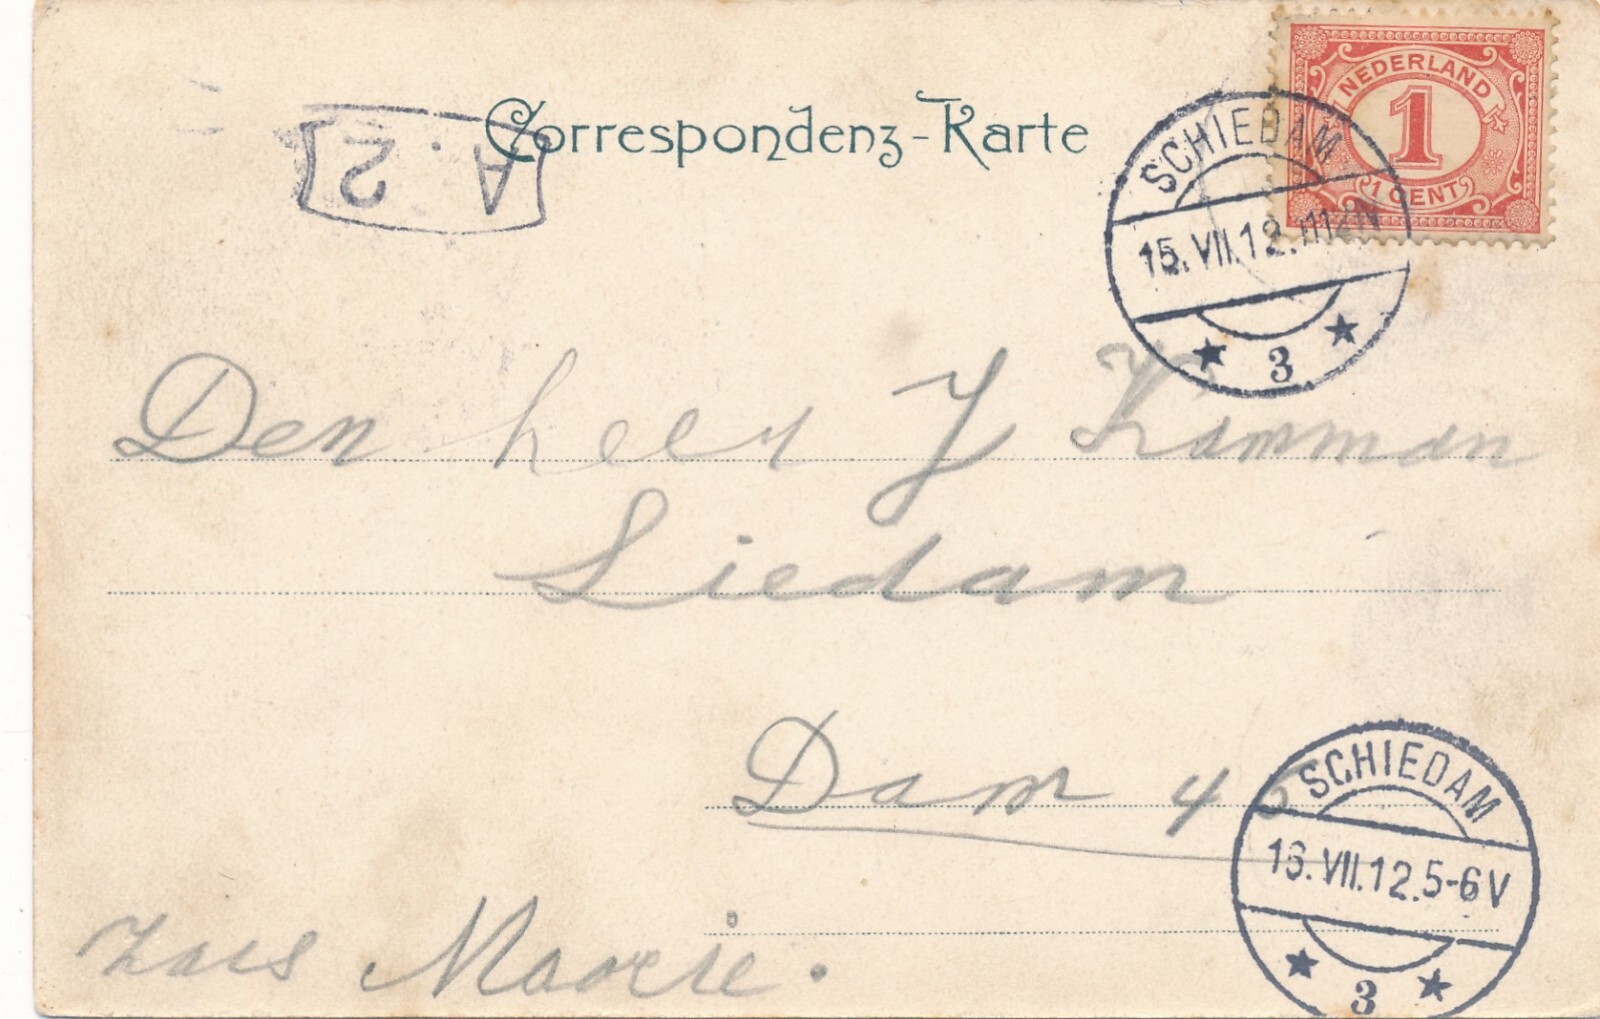 Correspondenz-Karte
A. 2
NEDERLAND
1
1 CENT
SCHIEDAM
15.VII.12.
3
Den heer J Kamman
Siedam
Dam 46
SCHIEDAM
16.VII.12.5-6V
3